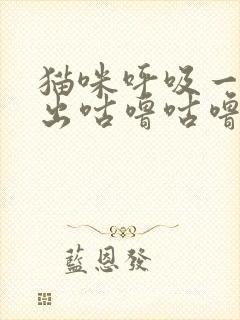 猫咪呼吸一
出咕噜咕噜
藍恩發